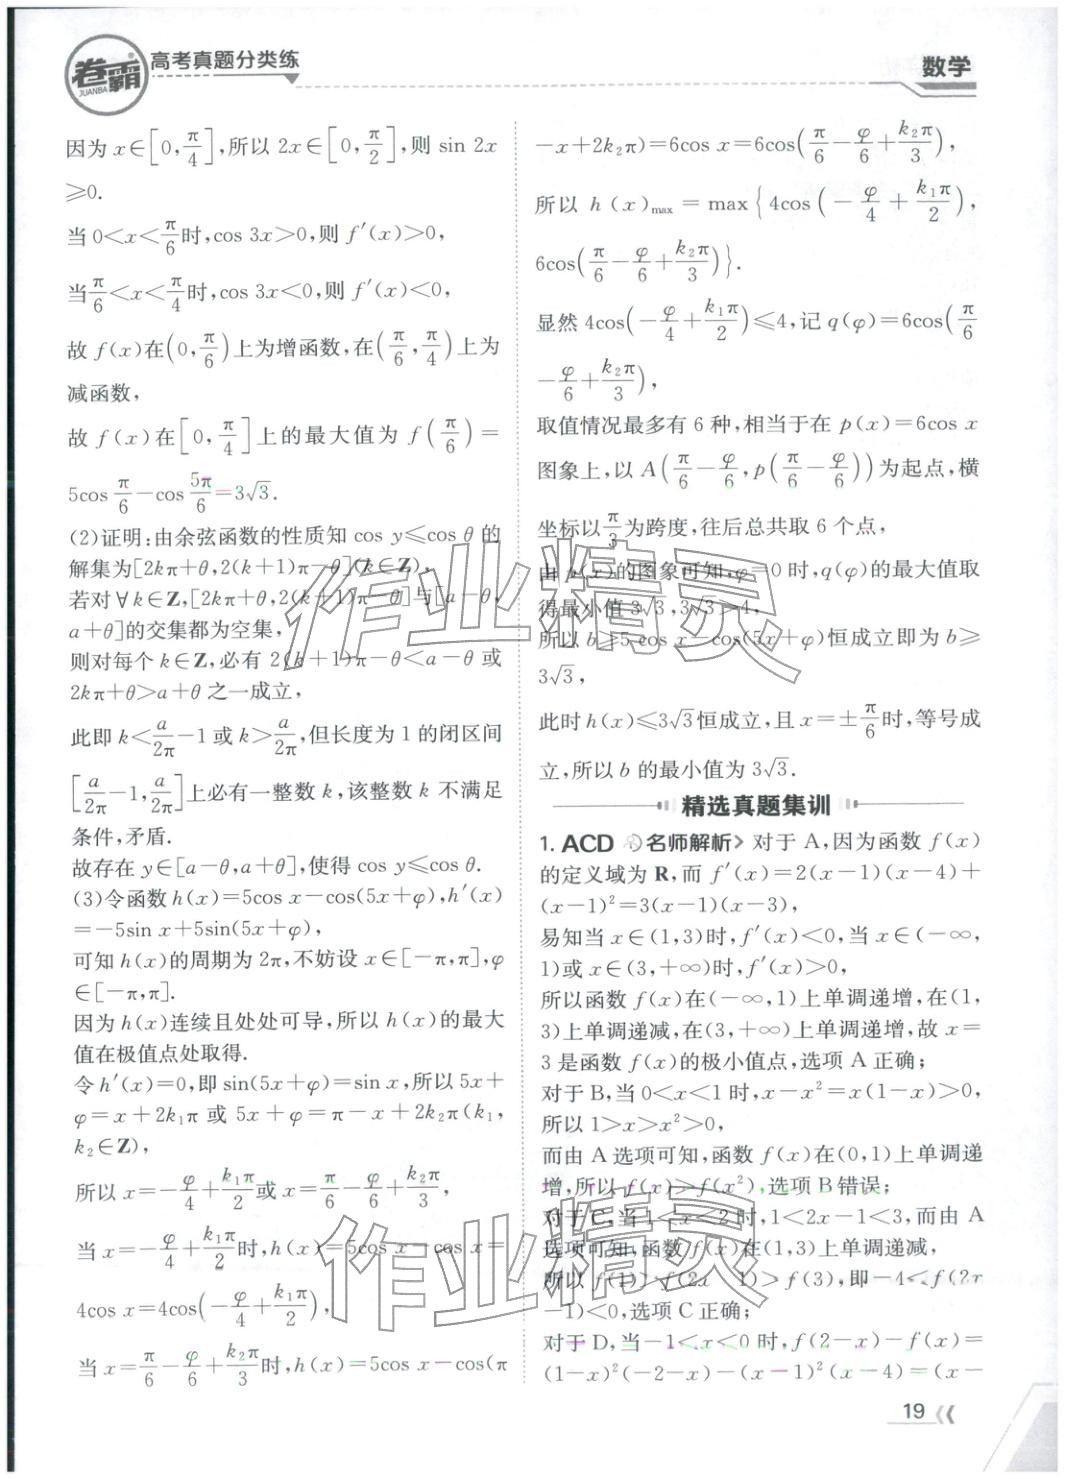 卷霸
JUANBA
高考真题分类练
数学
因为 x∈[0,π/4],所以 2x∈[0,π/2],则 sin 2x
≥0.
当 0<x<π/6时,cos 3x>0,则 f′(x)>0,
当π/6<x<π/4时,cos 3x<0,则 f′(x)<0,
故 f(x)在(0,π/6)上为增函数,在(π/6,π/4)上为
减函数,
故 f(x)在[0,π/4]上的最大值为 f(π/6)=
5cos π/6−cos 5π/6=3√3.
(2)证明:由余弦函数的性质知 cos y≤cos θ 的
解集为[2kπ+θ,2(k+1)π−θ](k∈Z),
若对∀k∈Z,[2kπ+θ,2(k+1)π−θ]与[a−θ,
a+θ]的交集都为空集,
则对每个 k∈Z,必有 2(k+1)π−θ<a−θ 或
2kπ+θ>a+θ 之一成立,
此即 k<a/2π−1 或 k>a/2π,但长度为 1 的闭区间
[a/2π−1,a/2π]上必有一整数 k,该整数 k 不满足
条件,矛盾.
故存在 y∈[a−θ,a+θ],使得 cos y≤cos θ.
(3)令函数 h(x)=5cos x−cos(5x+φ),h′(x)
=−5sin x+5sin(5x+φ),
可知 h(x)的周期为 2π,不妨设 x∈[−π,π],φ
∈[−π,π].
因为 h(x)连续且处处可导,所以 h(x)的最大
值在极值点处取得.
令 h′(x)=0,即 sin(5x+φ)=sin x,所以 5x+
φ=x+2k₁π 或 5x+φ=π−x+2k₂π(k₁,
k₂∈Z),
所以 x=−φ/4+k₁π/2或 x=π/6−φ/6+k₂π/3,
当 x=−φ/4+k₁π/2时,h(x)=5cos x−cos x=
4cos x=4cos(−φ/4+k₁π/2),
当 x=π/6−φ/6+k₂π/3时,h(x)=5cos x−cos(π
−x+2k₂π)=6cos x=6cos(π/6−φ/6+k₂π/3),
所以 h(x)max=max{4cos(−φ/4+k₁π/2),
6cos(π/6−φ/6+k₂π/3)}.
显然 4cos(−φ/4+k₁π/2)≤4,记 q(φ)=6cos(π/6
−φ/6+k₂π/3),
取值情况最多有 6 种,相当于在 p(x)=6cos x
图象上,以 A(π/6−φ/6,p(π/6−φ/6))为起点,横
坐标以π/3为跨度,往后总共取 6 个点,
由 p(x)的图象可知,φ=0 时,q(φ)的最大值取
得最小值 3√3,3√3>4,
所以 b≥5cos x−cos(5x+φ)恒成立即为 b≥
3√3,
此时 h(x)≤3√3恒成立,且 x=±π/6时,等号成
立,所以 b 的最小值为 3√3.
精选真题集训
1. ACD 名师解析> 对于 A,因为函数 f(x)
的定义域为 R,而 f′(x)=2(x−1)(x−4)+
(x−1)²=3(x−1)(x−3),
易知当 x∈(1,3)时,f′(x)<0,当 x∈(−∞,
1)或 x∈(3,+∞)时,f′(x)>0,
所以函数 f(x)在(−∞,1)上单调递增,在(1,
3)上单调递减,在(3,+∞)上单调递增,故 x=
3 是函数 f(x)的极小值点,选项 A 正确;
对于 B,当 0<x<1 时,x−x²=x(1−x)>0,
所以 1>x>x²>0,
而由 A 选项可知,函数 f(x)在(0,1)上单调递
增,所以 f(x)>f(x²),选项 B 错误;
对于 C,当 1<x<2 时,1<2x−1<3,而由 A
选项可知,函数 f(x)在(1,3)上单调递减,
所以 f(1)>f(2x−1)>f(3),即−4<f(2x
−1)<0,选项 C 正确;
对于 D,当−1<x<0 时,f(2−x)−f(x)=
(1−x)²(−2−x)−(x−1)²(x−4)=(x−
19
作业精灵
作业精灵